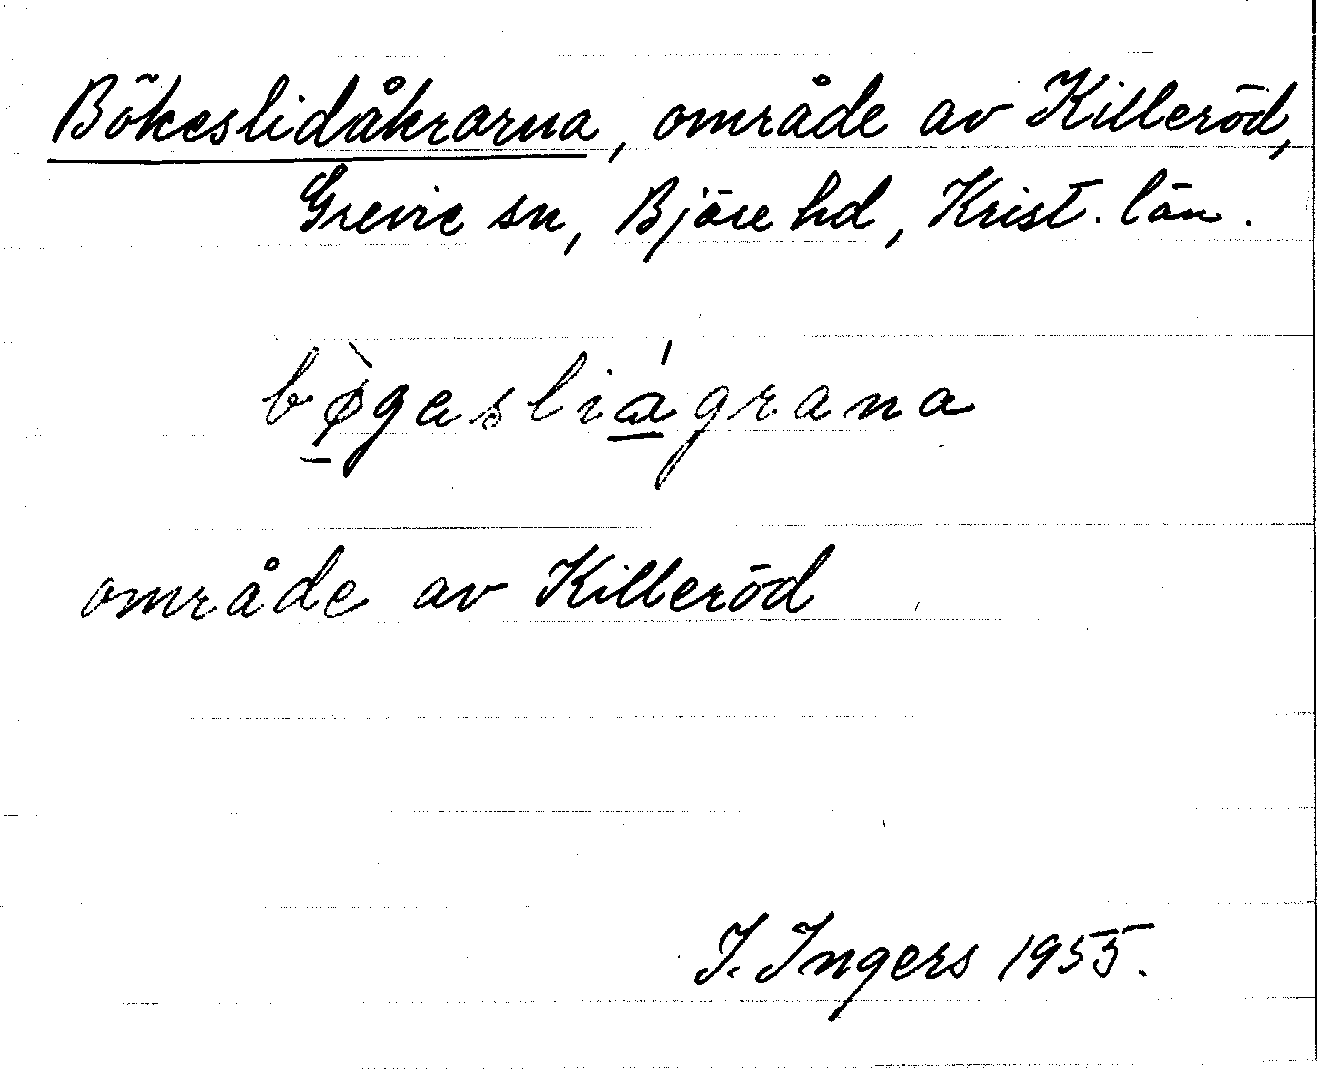 Bökeslidåkrarna, område av Killeröd,
Grevie sn, Bjäre hd, Krist. län.
bø̠̀gasliá̠grana
område av Killeröd
I. Ingers 1955.